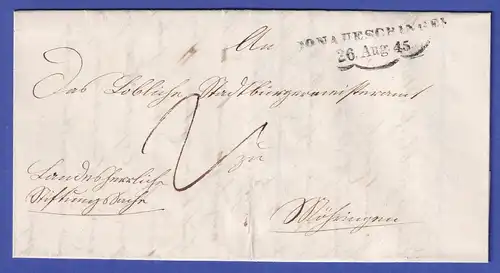 An
DONAUESCHINGEN
26. Aug. 45.
Das Löbliche Stadtbürgermeisteramt
2
zu
Landesherrliche
Stiftungssache
Möhringen